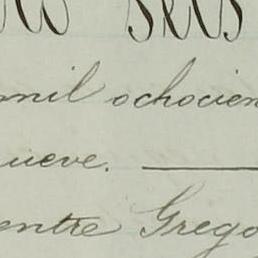 seis
mil ochocien
ueve. —
entre Grego